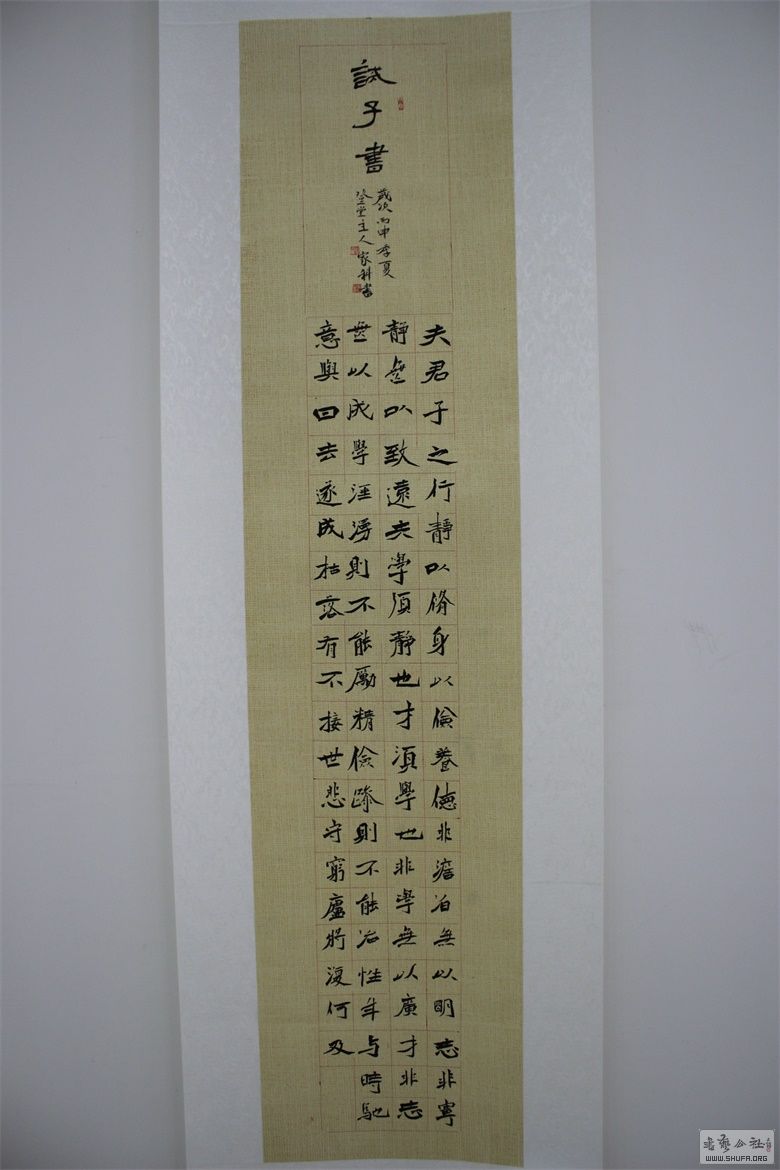 誡子書
歲次丙申季夏
堂主人家科書
夫君子之行靜以脩身以儉養德非澹泊無以明志非寧
靜無以致遠夫學須靜也才須學也非學無以廣才非志
無以成學淫則不能勵精儉躁則不能治性年与時馳
意與日去遂成枯落有不接世悲守窮廬將復何及
書藝公社
WWW.SHUFA.ORG